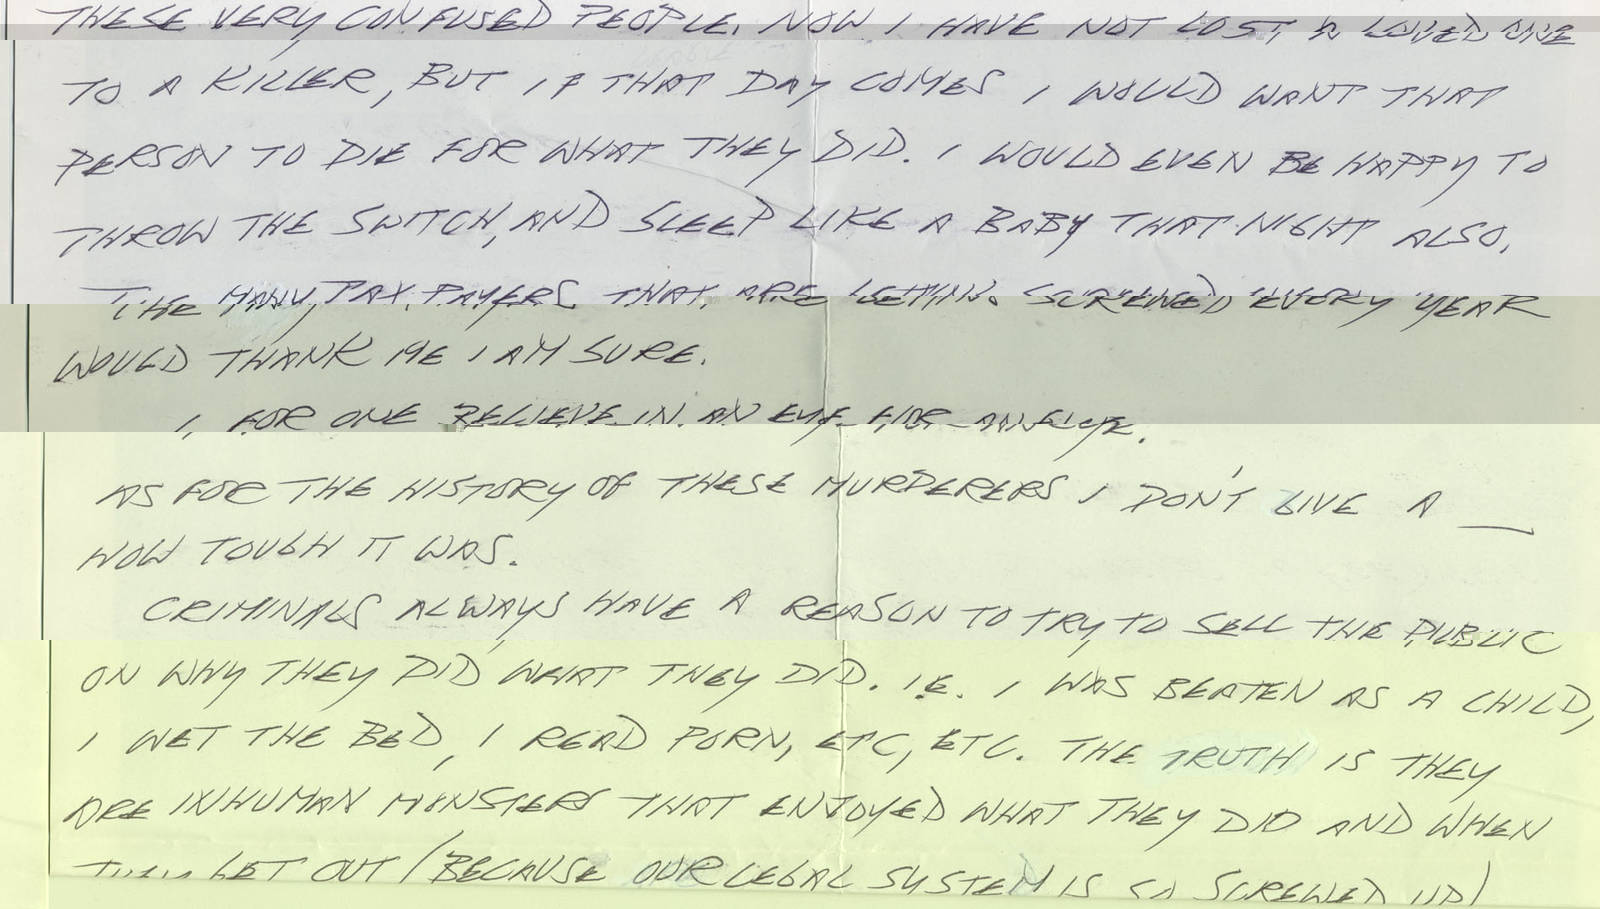 THESE VERY CONFUSED PEOPLE. NOW I HAVE NOT LOST A LOVED ONE
TO A KILLER, BUT IF THAT DAY COMES I WOULD WANT THAT
PERSON TO DIE FOR WHAT THEY DID. I WOULD EVEN BE HAPPY TO
THROW THE SWITCH, AND SLEEP LIKE A BABY THAT NIGHT ALSO.
THE MANY TAX PAYERS THAT ARE GETTING SCREWED EVERY YEAR
WOULD THANK ME I AM SURE.
I, FOR ONE BELIEVE IN AN EYE FOR AN EYE.
AS FOR THE HISTORY OF THESE MURDERERS I DON'T GIVE A __
HOW TOUGH IT WAS.
CRIMINALS ALWAYS HAVE A REASON TO TRY, TO SELL THE PUBLIC
ON WHY THEY DID WHAT THEY DID. I.E. I WAS BEATEN AS A CHILD,
I WET THE BED, I READ PORN, ETC, ETC. THE TRUTH IS THEY
ARE INHUMAN MONSTERS THAT ENJOYED WHAT THEY DID AND WHEN
THEY GET OUT (BECAUSE OUR LEGAL SYSTEM IS SO SCREWED UP)